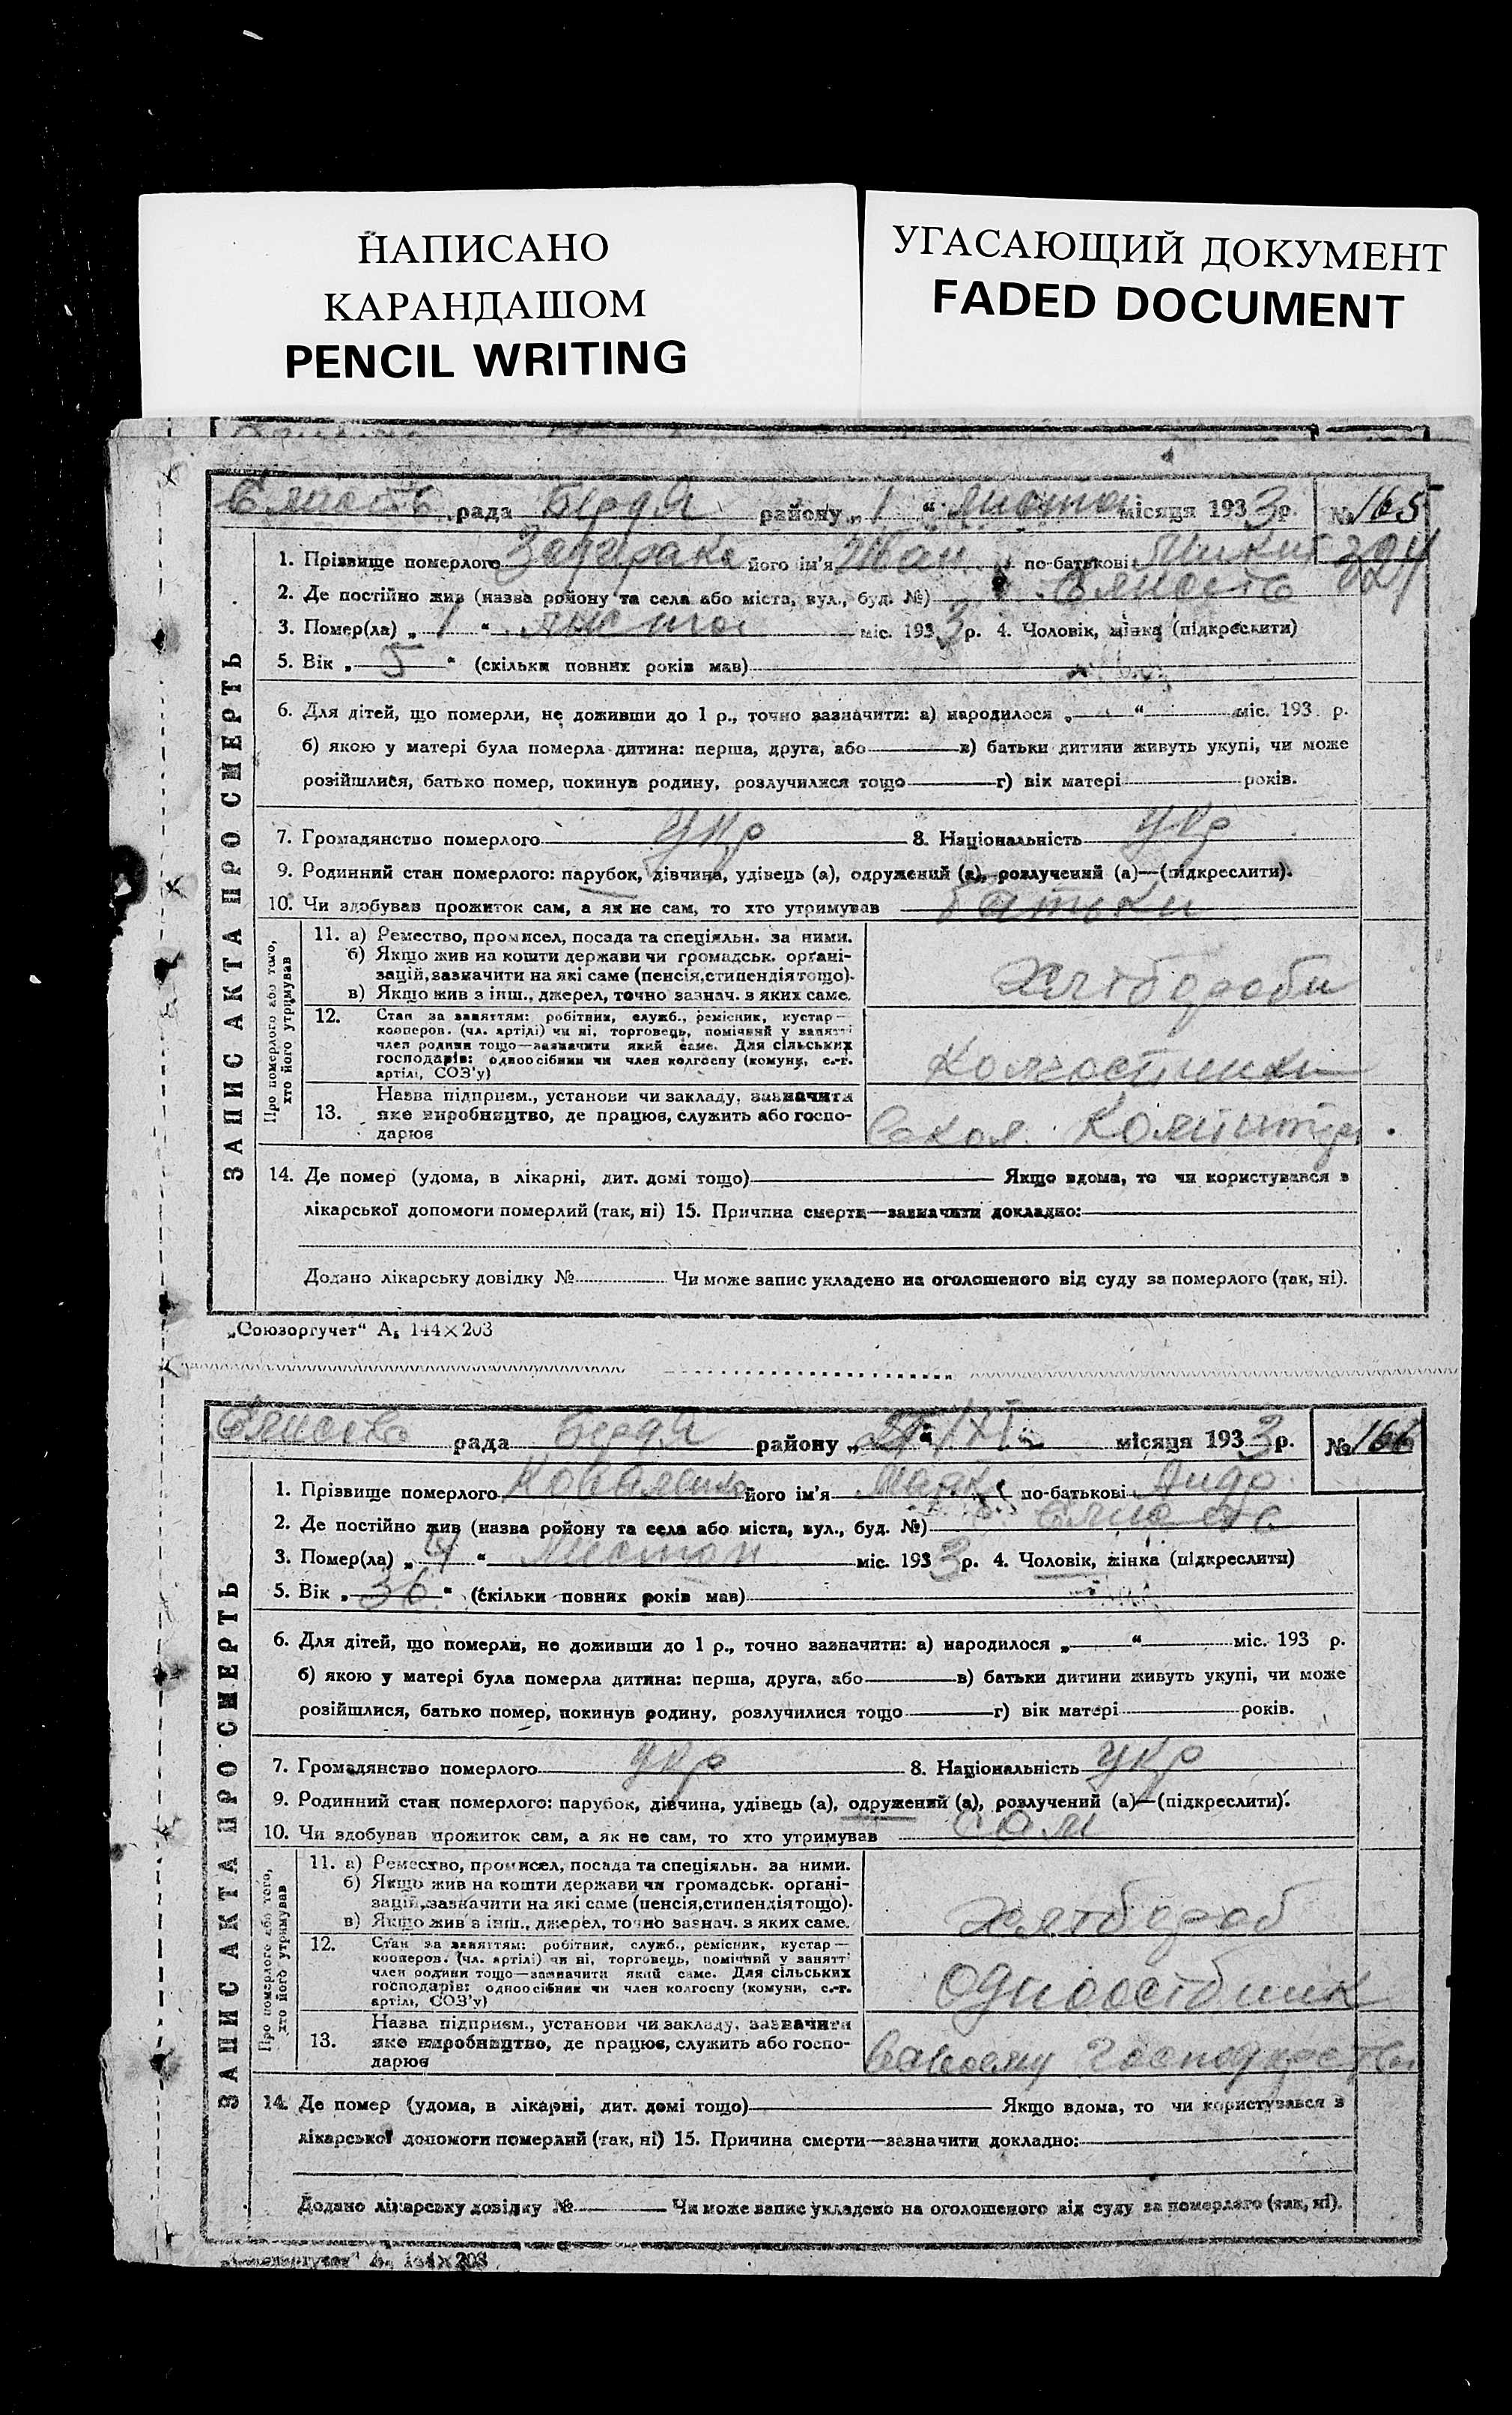 НАПИСАНО
КАРАНДАШОМ
PENCIL WRITING
УГАСАЮЩИЙ ДОКУМЕНТ
FADED DOCUMENT
рада Бердя району „ 1 “ місяця 1933 р. № 165
1. Прізвище померлого його ім'я по-батькові
324
2. Де постійно жив (назва ройону та села або міста, вул., буд. №)
3. Помер(ла) „ 1 “ міс. 1933 р. 4. Чоловік, жінка (підкреслити)
5. Вік „ 5 “ (скільки повних років мав)
6. Для дітей, що померли, не доживши до 1 р., точно зазначити: а) народилося „ “ міс. 193 р.
б) якою у матері була померла дитина: перша, друга, або в) батьки дитини живуть укупі, чи може
розійшлися, батько помер, покинув родину, розлучилися тощо г) вік матері років.
7. Громадянство померлого Укр 8. Національність Укр
9. Родинний стан померлого: парубок, дівчина, удівець (а), одружений (а), розлучений (а)—(підкреслити).
10. Чи здобував прожиток сам, а як не сам, то хто утримував батьки
ЗАПИС АКТА ПРО СМЕРТЬ
Про померлого або того,
хто його утримував
11. а) Ремество, промисел, посада та спеціяльн. за ними.
б) Якщо жив на кошти держави чи громадськ. органі-
зацій, зазначити на які саме (пенсія, стипендія тощо).
в) Якщо жив з інш., джерел, точно зазнач. з яких саме.
12. Стан за заняттям: робітник, служб., ремісник, кустар—
кооперов. (чл. артілі) чи ні, торговець, помічний у занятті
член родини тощо—зазначити який саме. Для сільських
господарів: одноосібник чи член колгоспу (комуни, с.-г.
артілі, СОЗ'у)
13. Назва підприєм., установи чи закладу, зазначити
яке виробництво, де працює, служить або госпо-
дарює
14. Де помер (удома, в лікарні, дит. домі тощо) Якщо вдома, то чи користувався з
лікарської допомоги померлий (так, ні) 15. Причина смерти—зазначити докладно:
Додано лікарську довідку № Чи може запис укладено на оголошеного від суду за померлого (так, ні).
„Союзоргучет“ А₅ 144×203
рада Бердя району „ “ місяця 1933 р. № 166
1. Прізвище померлого його ім'я по-батькові
2. Де постійно жив (назва ройону та села або міста, вул., буд. №)
3. Помер(ла) „ “ міс. 1933 р. 4. Чоловік, жінка (підкреслити)
5. Вік „ 36 “ (скільки повних років мав)
6. Для дітей, що померли, не доживши до 1 р., точно зазначити: а) народилося „ “ міс. 193 р.
б) якою у матері була померла дитина: перша, друга, або в) батьки дитини живуть укупі, чи може
розійшлися, батько помер, покинув родину, розлучилися тощо г) вік матері років.
7. Громадянство померлого Укр 8. Національність Укр
9. Родинний стан померлого: парубок, дівчина, удівець (а), одружений (а), розлучений (а)—(підкреслити).
10. Чи здобував прожиток сам, а як не сам, то хто утримував сам
ЗАПИС АКТА ПРО СМЕРТЬ
Про померлого або того,
хто його утримував
11. а) Ремество, промисел, посада та спеціяльн. за ними.
б) Якщо жив на кошти держави чи громадськ. органі-
зацій, зазначити на які саме (пенсія, стипендія тощо).
в) Якщо жив з інш., джерел, точно зазнач. з яких саме.
12. Стан за заняттям: робітник, служб., ремісник, кустар—
кооперов. (чл. артілі) чи ні, торговець, помічний у занятті
член родини тощо—зазначити який саме. Для сільських
господарів: одноосібник чи член колгоспу (комуни, с.-г.
артілі, СОЗ'у)
13. Назва підприєм., установи чи закладу, зазначити
яке виробництво, де працює, служить або госпо-
дарює
14. Де помер (удома, в лікарні, дит. домі тощо) Якщо вдома, то чи користувався з
лікарської допомоги померлий (так, ні) 15. Причина смерти—зазначити докладно:
Додано лікарську довідку № Чи може запис укладено на оголошеного від суду за померлого (так, ні).
„Союзоргучет“ А₅ 144×203